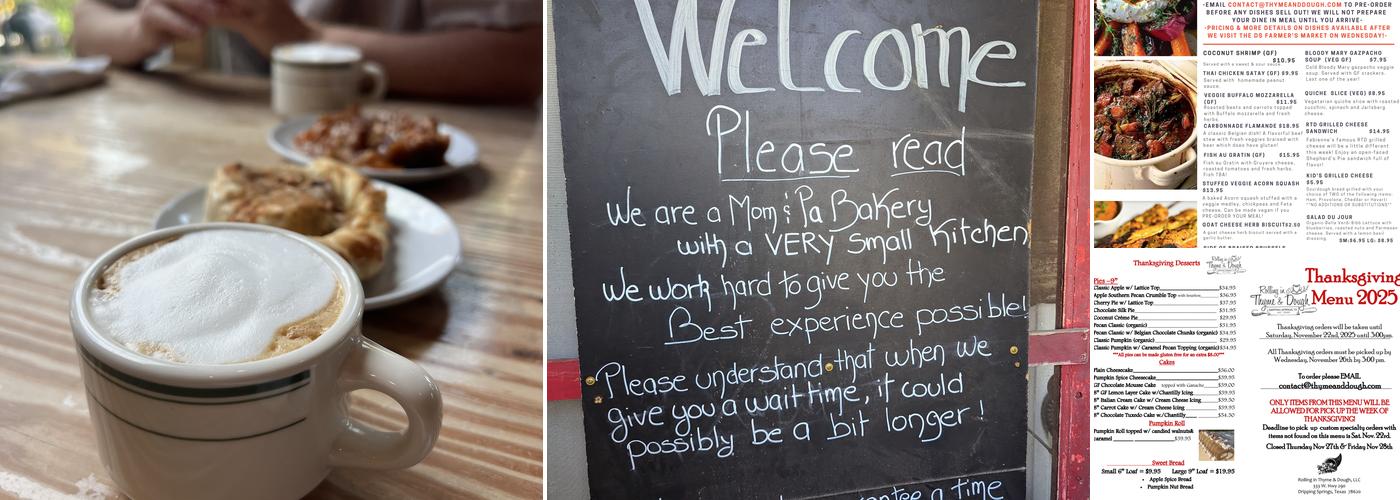 Welcome
Please read
We are a Mom & Pa Bakery
with a VERY small Kitchen
We work hard to give you the
Best experience possible!
Please understand that when we
give you a wait time, it could
possibly be a bit longer!
a time
-EMAIL CONTACT@THYMEANDDOUGH.COM TO PRE-ORDER
BEFORE ANY DISHES SELL OUT! WE WILL NOT PREPARE
YOUR DINE IN MEAL UNTIL YOU ARRIVE-
-PRICING & MORE DETAILS ON DISHES AVAILABLE AFTER
WE VISIT THE DS FARMER'S MARKET ON WEDNESDAY!-
COCONUT SHRIMP (GF)
$10.95
Served with a sweet & sour sauce
THAI CHICKEN SATAY (GF) $9.95
Served with homemade peanut
sauce.
VEGGIE BUFFALO MOZZARELLA
(GF) $11.95
Roasted beets and carrots topped
with buffalo mozzarella and fresh
herbs.
CARBONNADE FLAMANDE $18.95
A classic Belgian dish! A flavorful beef
stew with fresh veggies braised with
beer which does have gluten!
FISH AU GRATIN (GF) $15.95
Fish au Gratin with Gruyere cheese,
roasted tomatoes and fresh herbs.
Fish TBA!
STUFFED VEGGIE ACORN SQUASH
$13.95
A baked Acorn squash stuffed with a
veggie medley, chickpeas and Feta
cheese. Can be made vegan if you
PRE-ORDER YOUR MEAL!
GOAT CHEESE HERB BISCUIT $2.50
A goat cheese herb biscuit served with a
garlic butter.
BLOODY MARY GAZPACHO
SOUP (VEG GF) $7.95
Cold Bloody Mary gazpacho veggie
soup. Served with GF crackers.
Last one of the year!
QUICHE SLICE (VEG) $8.95
Vegetarian quiche slice with roasted
zucchini, spinach and Jarlsberg
cheese.
RTD GRILLED CHEESE
SANDWICH $14.95
Fabienne's famous RTD grilled
cheese will be a little different
this week! Enjoy an open-faced
Shepherd's Pie sandwich full of
flavor!
KID'S GRILLED CHEESE
$5.95
Sourdough bread grilled with your
choice of TWO of the following items:
Ham, Provolone, Cheddar or Havarti
**NO ADDITIONS OR SUBSTITUTIONS**
SALAD DU JOUR
Organic Bella Verdi Bibb Lettuce with
blueberries, roasted nuts and Parmesan
cheese. Served with a lemon basil
dressing. SM:$6.95 LG: $8.95
Thanksgiving Desserts
Rolling in
Thyme & Dough
Pies ~9"
Classic Apple w/ Lattice Top $34.95
Apple Southern Pecan Crumble Top with bourbon $36.95
Cherry Pie w/ Lattice Top $37.95
Chocolate Silk Pie $31.95
Coconut Crème Pie $29.95
Pecan Classic (organic) $31.95
Pecan Classic w/ Belgian Chocolate Chunks (organic) $34.95
Classic Pumpkin (organic) $29.95
Classic Pumpkin w/ Caramel Pecan Topping (organic) $34.95
***All pies can be made gluten free for an extra $8.00***
Cakes
Plain Cheesecake $56.00
Pumpkin Spice Cheesecake $59.95
GF Chocolate Mousse Cake topped with Ganache $59.00
8" GF Lemon Layer Cake w/Chantilly Icing $59.95
8" Italian Cream Cake w/ Cream Cheese Icing $59.50
8" Carrot Cake w/ Cream Cheese Icing $59.95
8" Chocolate Tuxedo Cake w/Chantilly $54.50
Pumpkin Roll
Pumpkin Roll topped w/ candied walnuts &
caramel $39.95
Sweet Bread
Small 6" Loaf = $9.95 Large 9" Loaf = $19.95
• Apple Spice Bread
• Pumpkin Nut Bread
Rolling in
Thyme & Dough
Thanksgiving
Menu 2025
Thanksgiving orders will be taken until
Saturday, November 22nd, 2025 until 3:00pm.
All Thanksgiving orders must be picked up by
Wednesday, November 26th by 3:00 pm.
To order please EMAIL
contact@thymeanddough.com
ONLY ITEMS FROM THIS MENU WILL BE
ALLOWED FOR PICK UP THE WEEK OF
THANKSGIVING!
Deadline to pick up custom specialty orders with
items not found on this menu is Sat. Nov. 22nd.
Closed Thursday Nov 27th & Friday Nov 28th
Rolling in Thyme & Dough, LLC
333 W. Hwy 290
Dripping Springs, Texas 78620